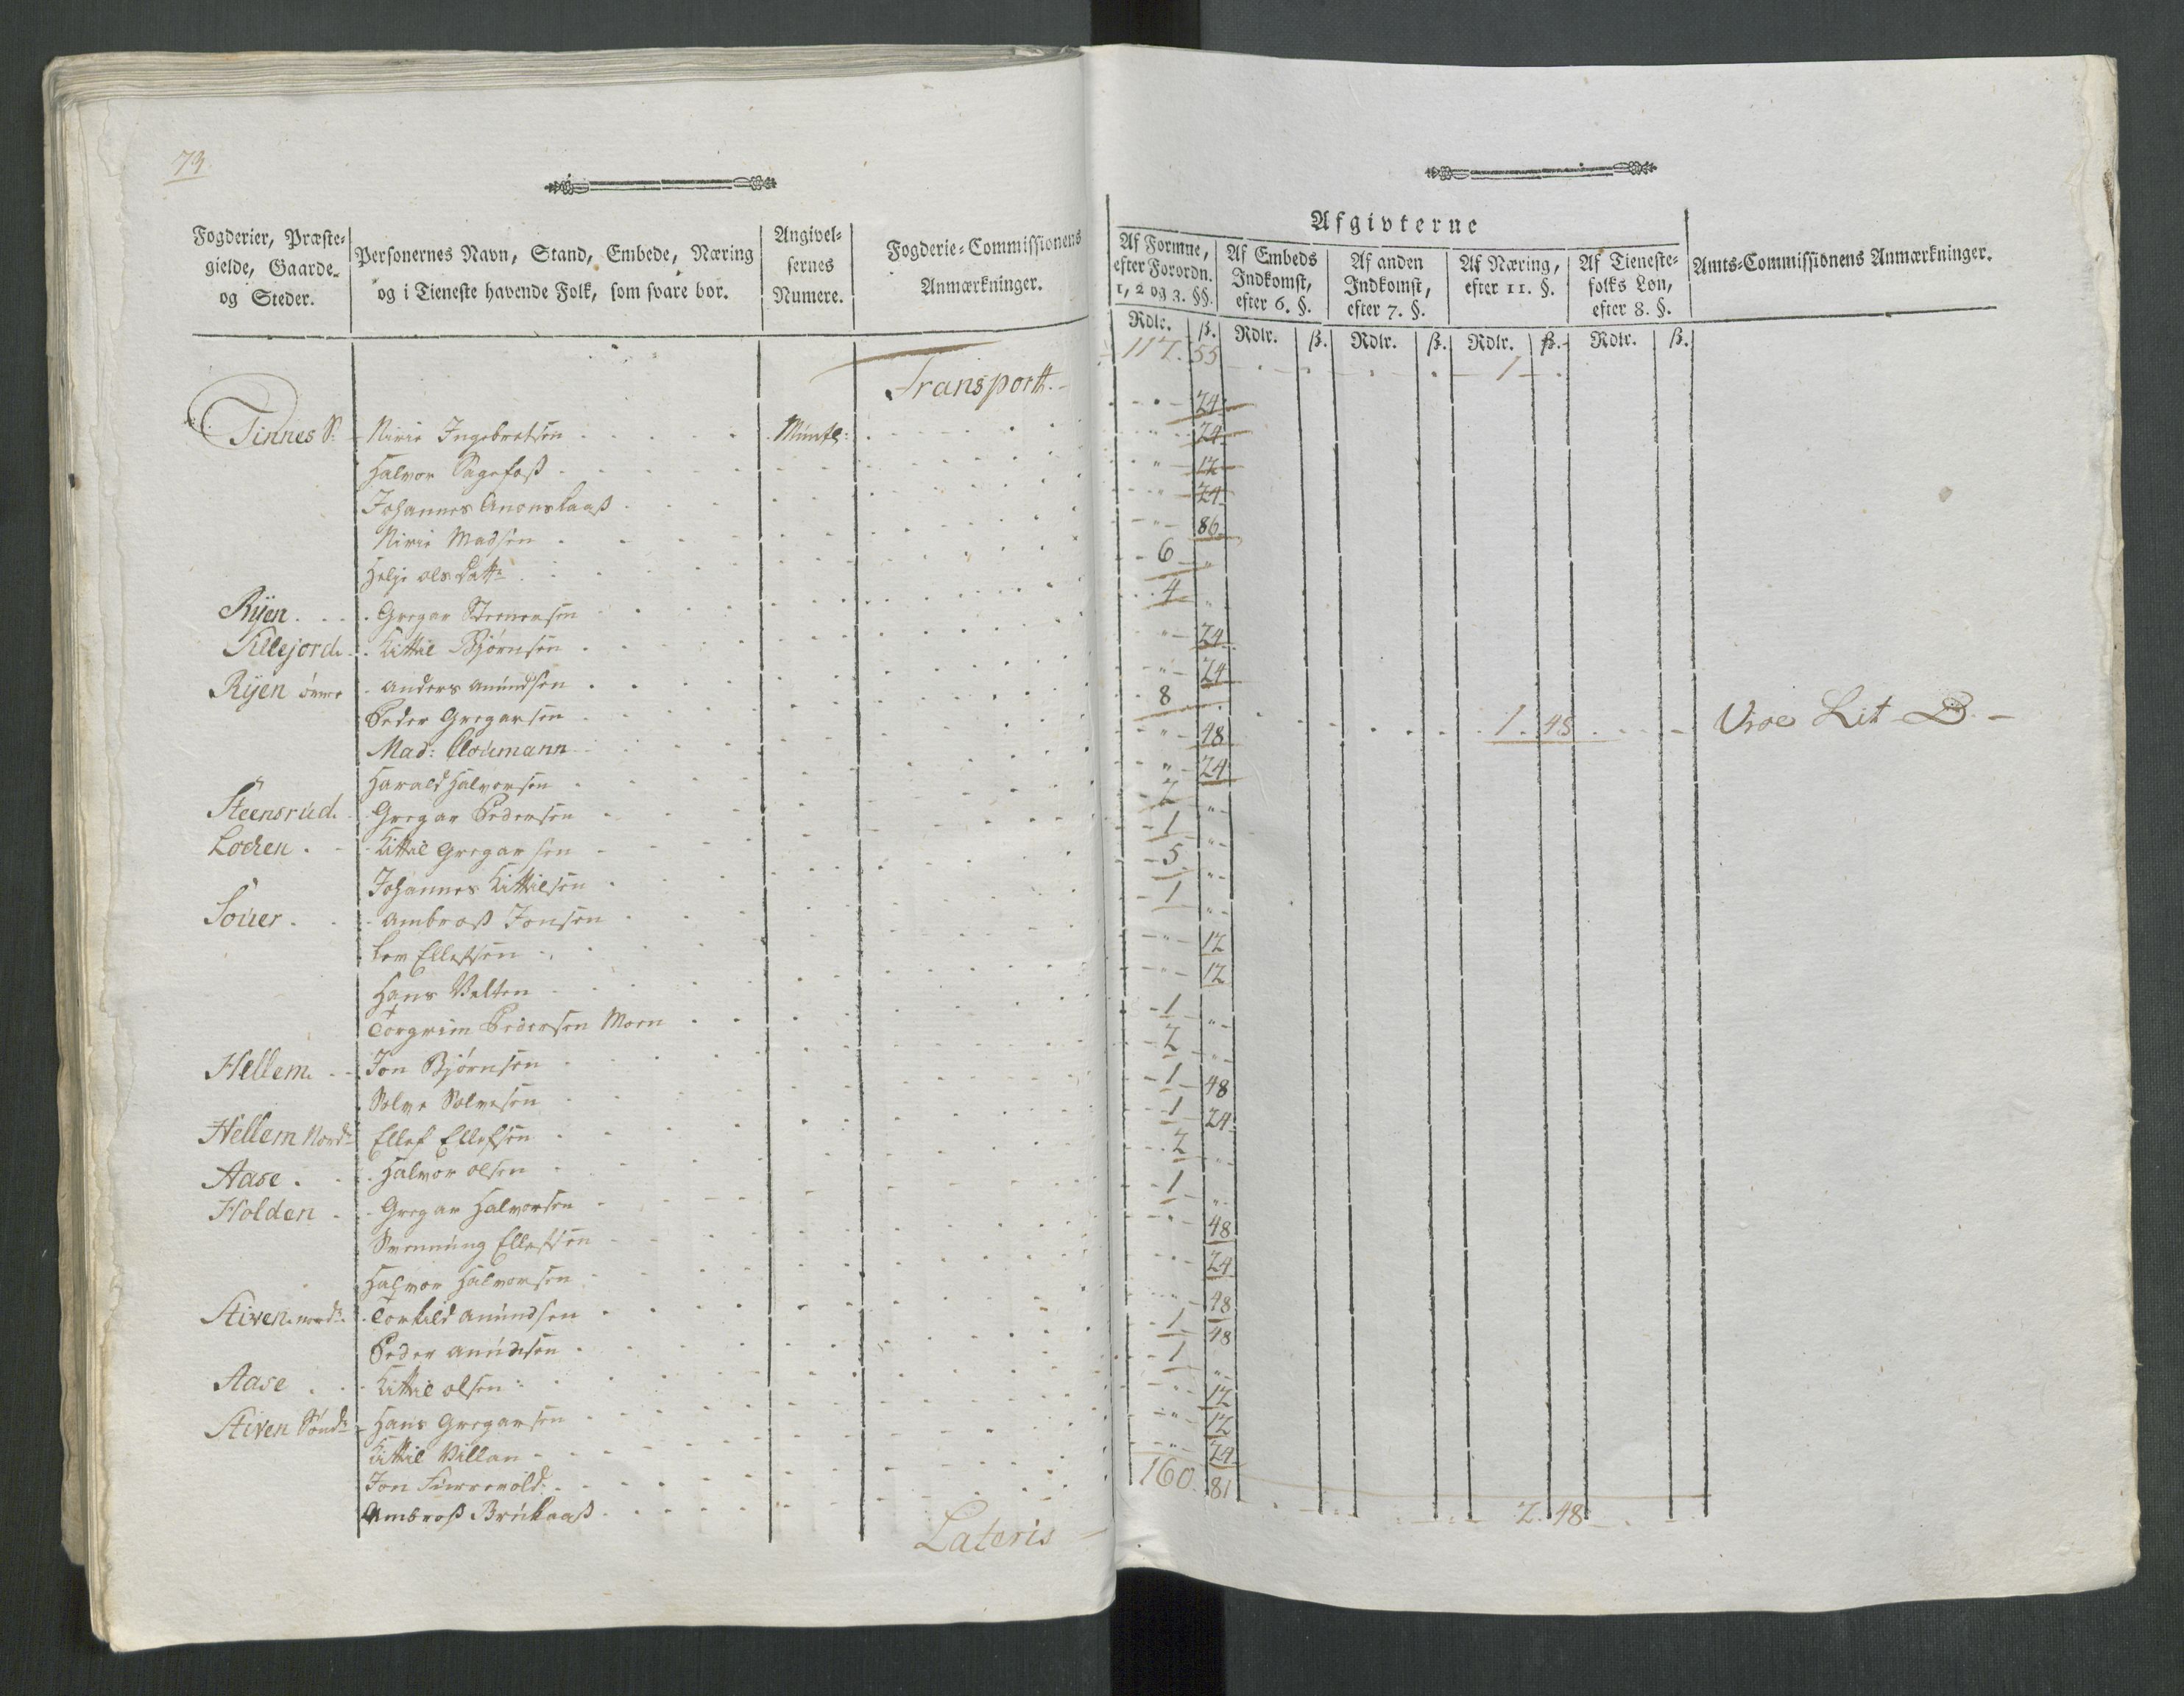 73.
Fogderier, Præste-
gielde, Gaarde-
og Steder.
Personernes Navn, Stand, Embede, Næring
og i Tieneste havende Folk, som svare bør.
Angivel-
sernes
Numere.
Fogderie-Commissionens
Anmærkninger.
Afgivterne
Af Formue,
efter Forordn.
1, 2 og 3. §§.
Af Embeds
Indkomst,
efter 6. §.
Af anden
Indkomst,
efter 7. §.
Af Næring,
efter 11. §.
Af Tieneste-
folks Løn,
efter 8. §.
Amts-Commissionens Anmærkninger.
Rdlr. ß. Rdlr. ß. Rdlr. ß. Rdlr. ß. Rdlr. ß.
Transport. 117. 55 1
Tinnes S: Nirie Ingebretsen Mùntl: 24
Halvor Sagefoß 24
Johannes 12
Nirie Madsen 24
Helje Ols Datt: 86
Rÿen Gregar Steenersen 6
Lillejord Kittil Bjørnsen 4
Rÿen øvre Anders Amùndsen 24
Peder Gregarsen 24
Mad: Cloùmann 8 1. 48 Vise Lit B.
Harald Halvorsen 48
Steensrùd. Gregar Pedersen 24
Locken Kittil Gregarsen 2
Johannes Kittilsen 1
Soùer Ambroß Jonsen 5
Lev Ellefsen 1
Hans Valten 12
Torgrim Pedersen Moen 12
Hellem Jon Bjørnsen 1
Solve Solvesen 2
Hellem Nord: Ellef Ellefsen 1 48
Aase Halvor Olsen 1 24
Holden Gregar Halvorsen 2
Svennùng Ellefsen 1
Halvor Halvorsen 48
Stiven nord: Torkild Amùndsen 24
Peder Amùndsen 48
Aase Kittil Olsen 1 48
Stiven Sønd: Hans Gregarsen 1
Kittil Villan 12
Jon Fùrrevold 12
Ambroß Brùkaaß 24
Lateris 160. 81 2. 48